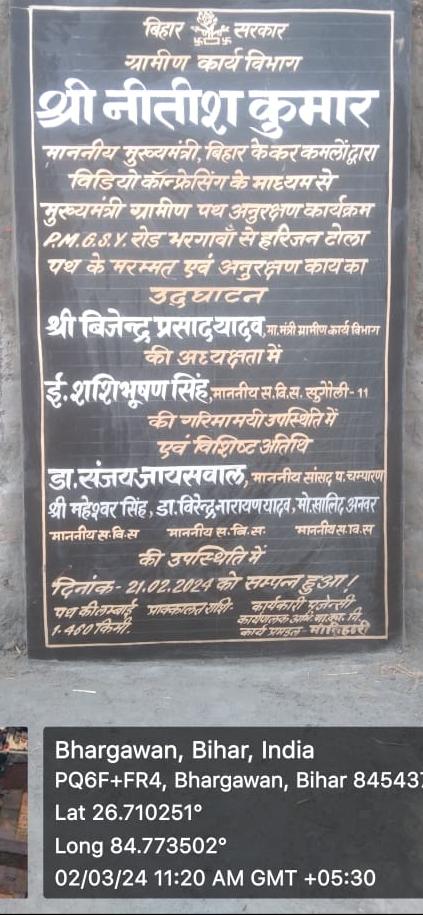 बिहार सरकार
ग्रामीण कार्य विभाग
श्री नीतीश कुमार
माननीय मुख्यमंत्री, बिहार के कर कमलों द्वारा
विडियो कॉन्फ्रेसिंग के माध्यम से
मुख्यमंत्री ग्रामीण पथ अनुरक्षण कार्यक्रम
P.M.G.S.Y. रोड भरगावाँ से हरिजन टोला
पथ के मरम्मत एवं अनुरक्षण कार्य का
उद्घाटन
श्री बिजेन्द्र प्रसाद यादव, मा. मंत्री ग्रामीण कार्य विभाग
की अध्यक्षता में
ई. शशिभूषण सिंह, माननीय स.वि.स. सुगौली - 11
की गरिमामयी उपस्थिति में
एवं विशिष्ट अतिथि
डा. संजय जायसवाल, माननीय सांसद प. चम्पारण
श्री महेश्वर सिंह, डा. विरेन्द्र नारायण यादव, मो. खालिद अनवर
माननीय स.वि.स माननीय स.वि.स. माननीय स.वि.स
की उपस्थिति में
दिनांक - 21.02.2024 को सम्पन्न हुआ!
पथ की लम्बाई प्राक्कलित राशि- कार्यकारी एजेन्सी
1.460 किमी. कार्यपालक अभि. ग्रा. का. वि.
कार्य प्रमंडल -
Bhargawan, Bihar, India
PQ6F+FR4, Bhargawan, Bihar 845437
Lat 26.710251°
Long 84.773502°
02/03/24 11:20 AM GMT +05:30